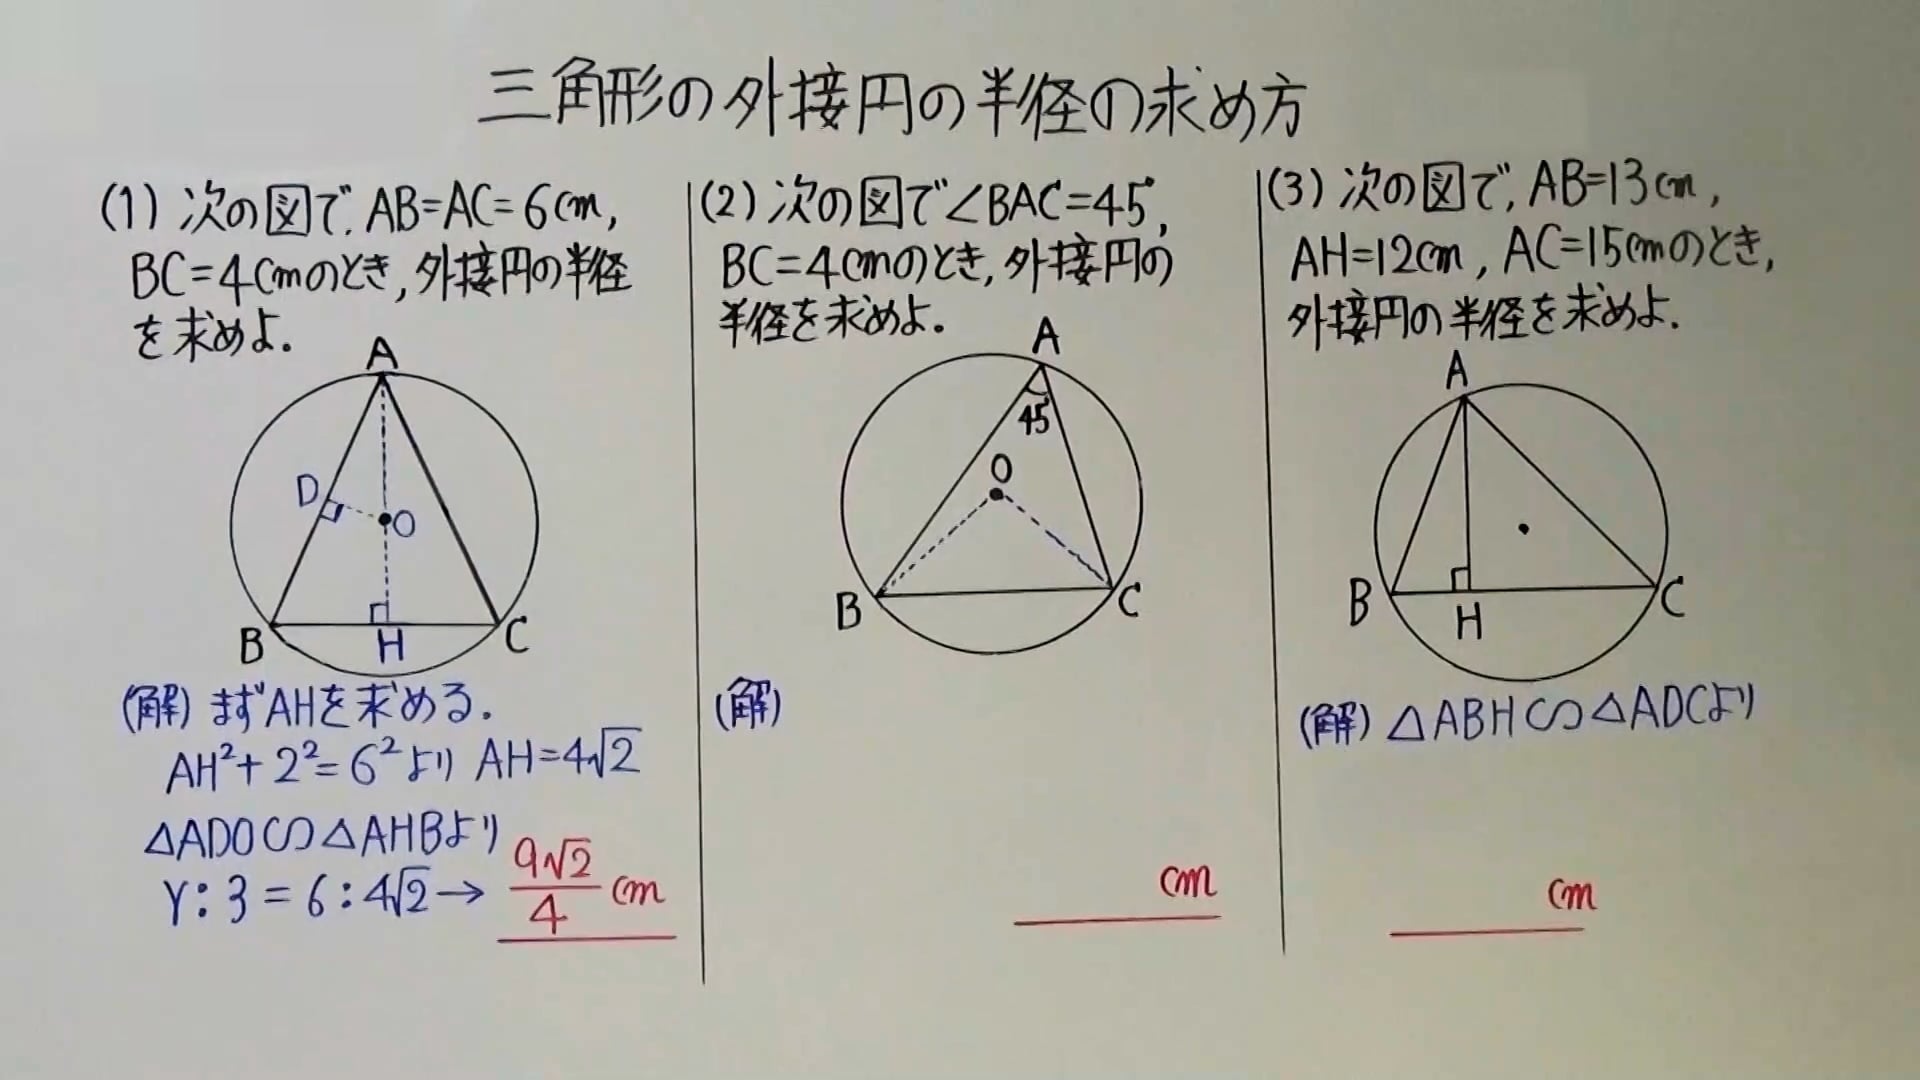 三角形の外接円の半径の求め方
(1) 次の図で, AB=AC=6cm,
BC=4cmのとき, 外接円の半径
を求めよ.
A
D
O
B
H
C
(解) まずAHを求める.
AH²+2²=6²より AH=4√2
△ADO∽△AHBより
r:3=6:4√2→ 9√2/4 cm
(2) 次の図で∠BAC=45°,
BC=4cmのとき, 外接円の
半径を求めよ.
A
45°
O
B
C
(解)
cm
(3) 次の図で, AB=13cm,
AH=12cm, AC=15cmのとき,
外接円の半径を求めよ.
A
B
H
C
(解) △ABH∽△ADCより
cm